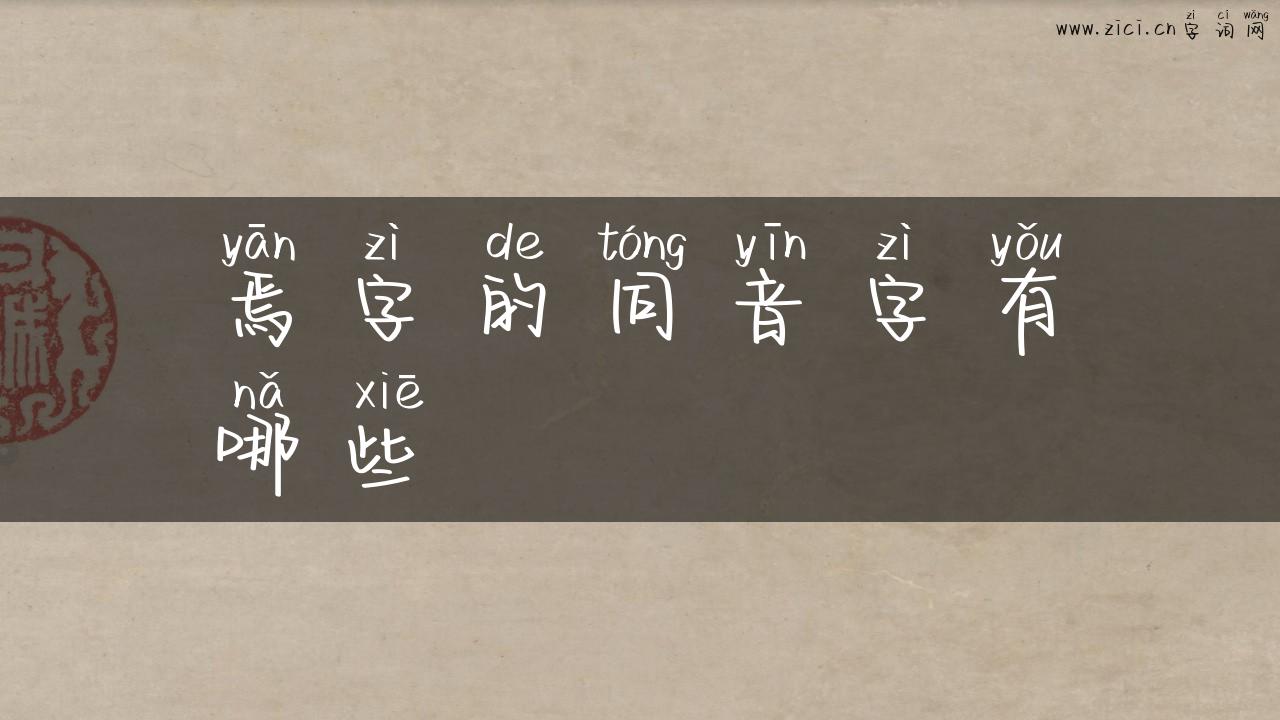 zì cí wǎng
www.zici.cn字词网
yān zì de tóng yīn zì yǒu
焉字的同音字有
nǎ xiē
哪些